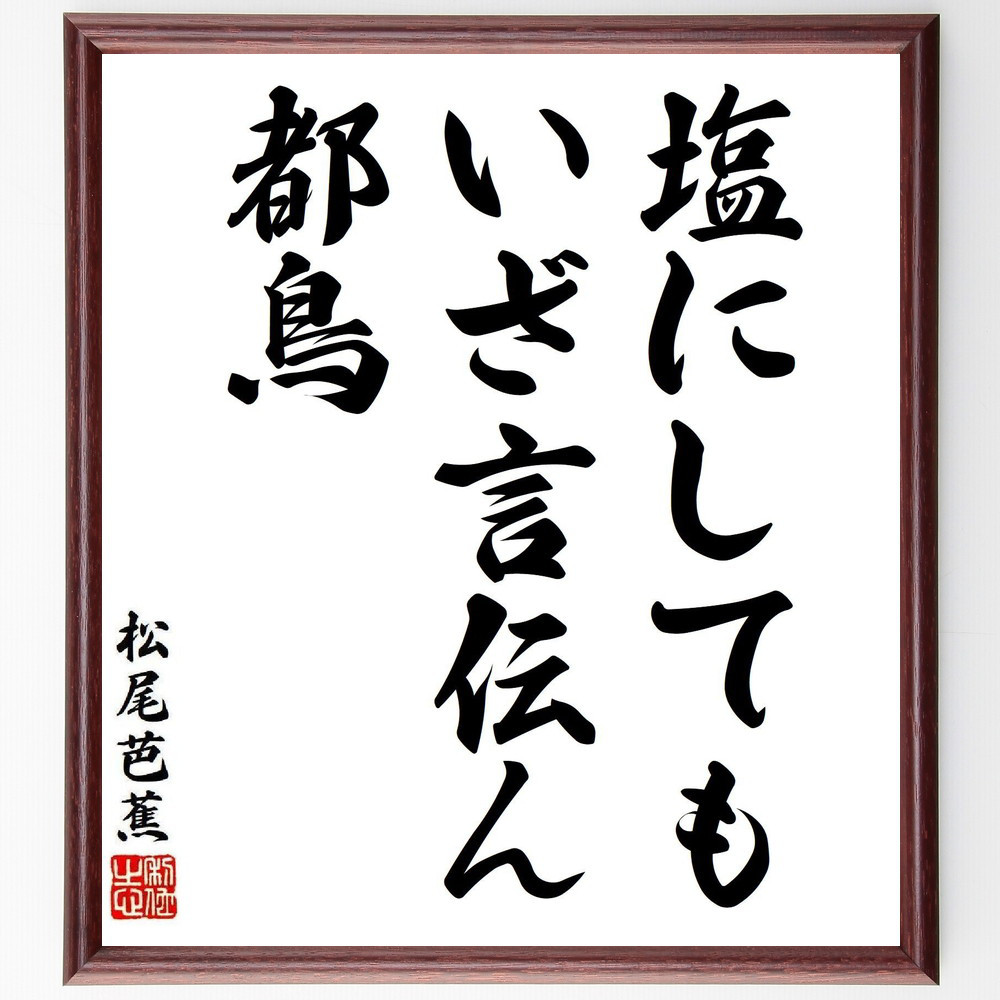 塩にしても
いざ言伝ん
都鳥
松尾芭蕉